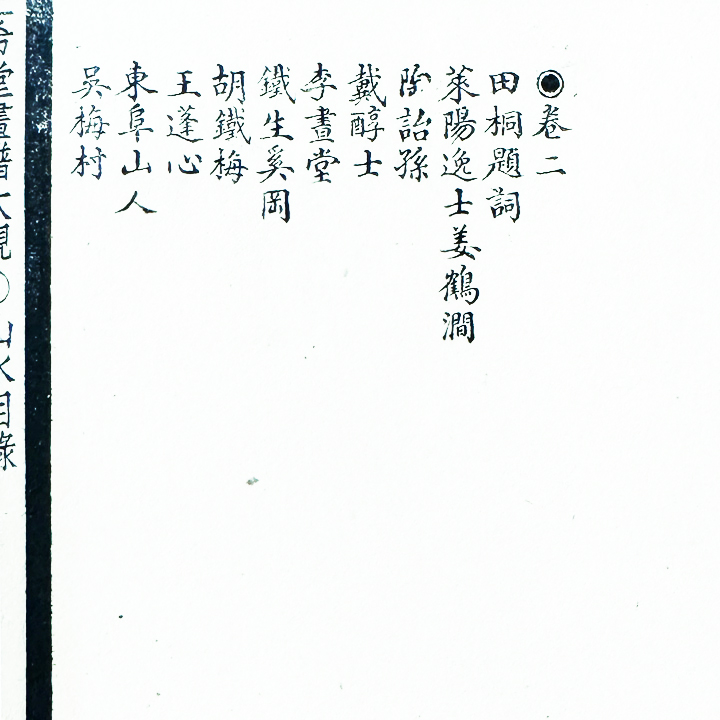 ◉卷二
田桐題詞
萊陽逸士姜鶴澗
陳詒孫
戴醇士
李畫堂
鐵生奚岡
胡鐵梅
王蓬心
東阜山人
吳梅村
堂畫譜大觀○山水目錄